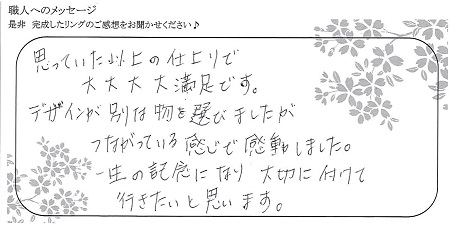 職人へのメッセージ
是非 完成したリングのご感想をお聞かせください♪
思っていた以上の仕上りで
大大大大満足です。
デザインが別な物を選びましたが
つながっている感じで感動しました。
一生の記念になり 大切に付けて
行きたいと思います。